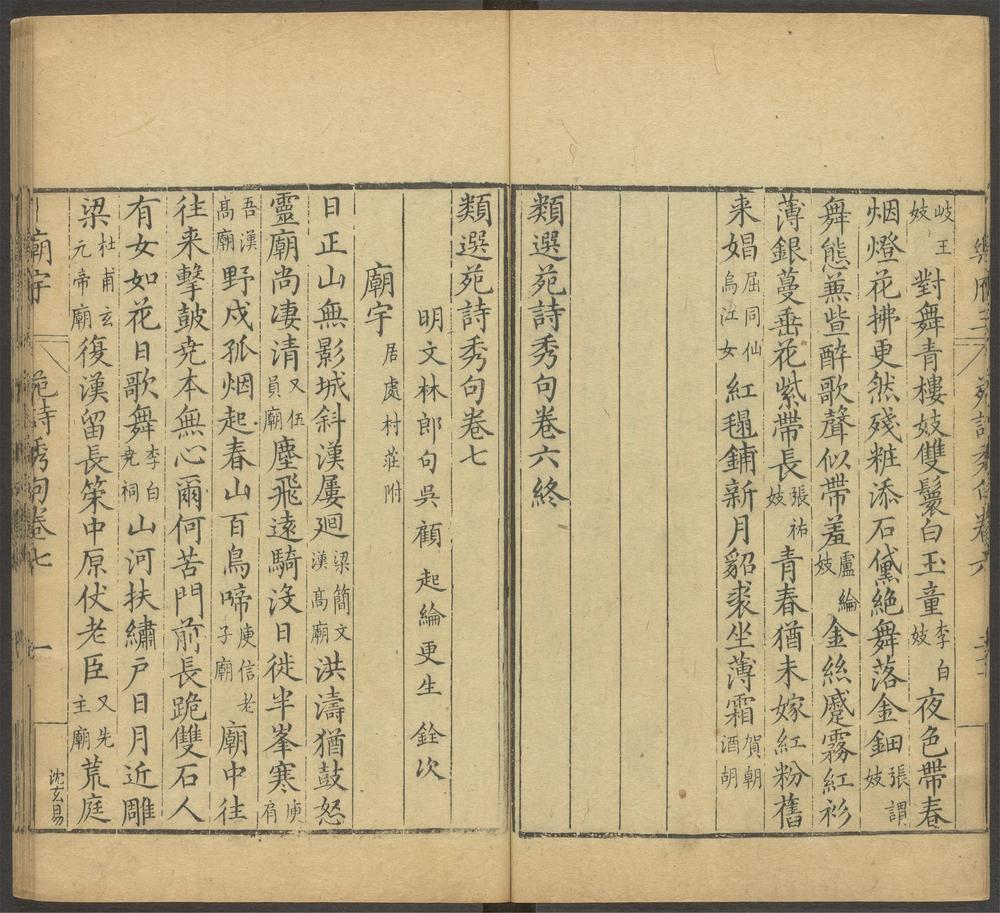 岐王妓 對舞青樓妓雙鬟白玉童 李白妓 夜色帶春
烟燈花拂更然殘粧添石黛絶舞落金鈿 張謂妓
舞態兼些醉歌聲似帶羞 盧綸妓 金絲蹙霧紅衫
薄銀蔓垂花紫帶長 張祐妓 青春猶未嫁紅粉舊
来娼 屈同仙烏江女 紅毺鋪新月貂裘坐薄霜 賀朝酒胡
類選苑詩秀句卷六終
類選苑詩秀句卷七
明文林郎句吳顧起綸更生銓次
廟宇 居處村莊附
日正山無影城斜漢屢廻 梁簡文漢高廟 洪濤猶鼓怒
靈廟尚凄清 又伍員廟 塵飛遠騎没日徙半峯寒 庾肩
吾漢高廟 野戍孤烟起春山百鳥啼 庾信老子廟 廟中往
往来擊皷尭本無心爾何苦門前長跪雙石人
有女如花日歌舞 李白尭祠 山河扶繡戸日月近雕
梁 杜甫玄元帝廟 復漢留長策中原伏老臣 又先主廟 荒庭
廟宇 苑詩秀句卷七 一
沈玄易